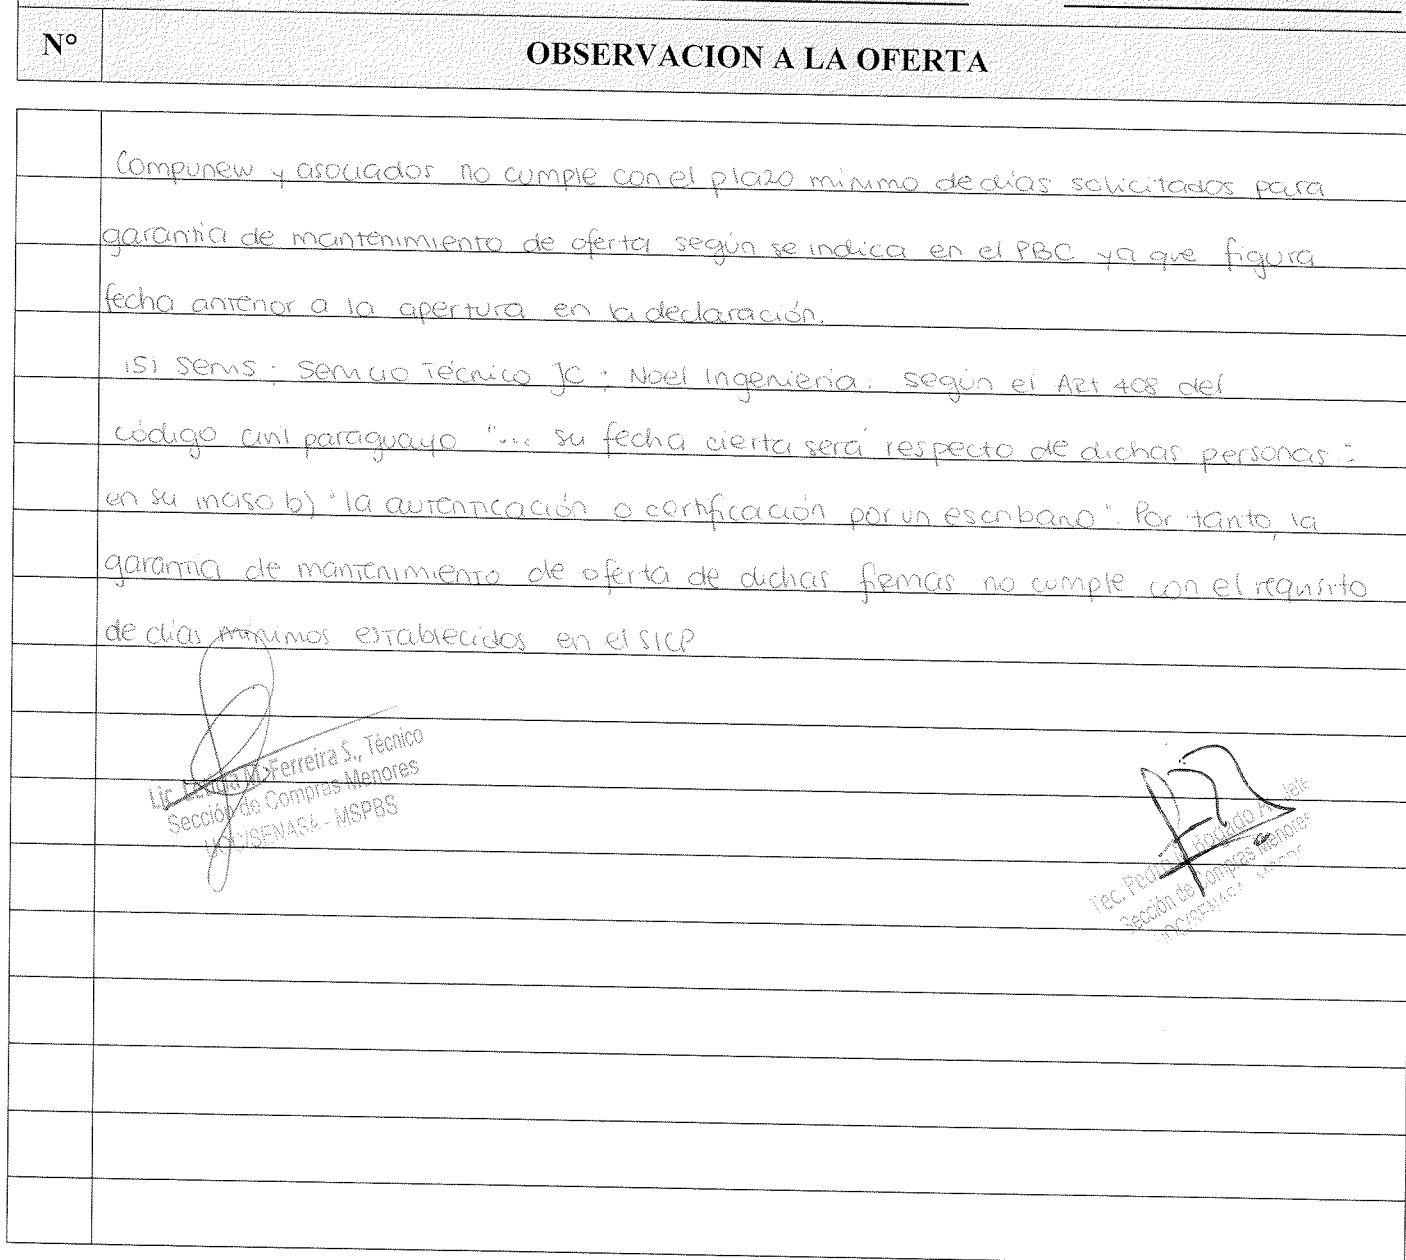 N° OBSERVACION A LA OFERTA
Compunew y asociados no cumple con el plazo minimo de dias solicitados para
garantia de mantenimiento de oferta según se indica en el PBC ya que figura
fecha anterior a la apertura en la declaración.
ISI Servis ; Servicio Técnico JC ; Noel Ingenieria. según el Art 408 del
código civil paraguayo "... su fecha cierta será respecto de dichas personas :"
en su inciso b) "la autenticación o certificación por un escribano". Por tanto, la
garantia de mantenimiento de oferta de dichas firmas no cumple con el requisito
de dias minimos establecidos en el SICP
Lic. M. Ferreira S., Técnico
Sección de Compras Menores
UOC/SENASA - MSPBS
Tec. Pedro
Sección de Compras Menores
UOC/SENASA